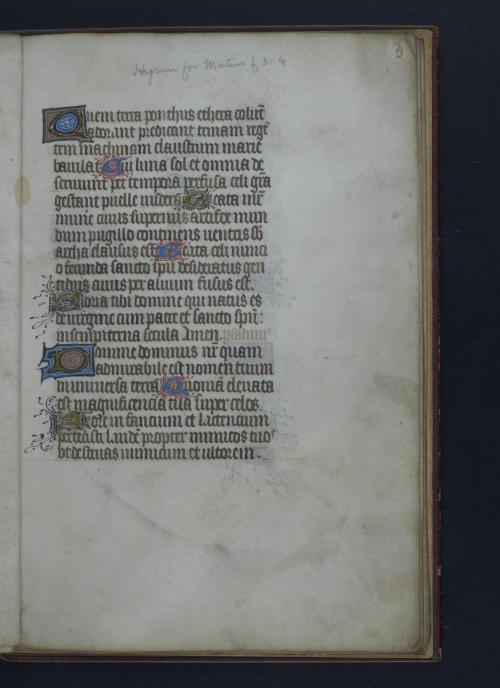 Hymn for Matins f 3-4
3
Quem terra ponthus ethera colūt
adorant predicant trinam regē
tem machinam claustrum marie
baiulat Cui luna sol et omnia de
seruiunt per tempora perfusa celi grā
gestant puelle uiscera Beata mr̄
munere cuius supernus artifex mun
dum pugillo continens uentris sb̄
archa clausus est Beata celi nunci
o fecunda sancto spū desideratus gen
tibus cuius per aluum fusus est.
Gloria tibi domine qui natus es
de uirgine cum patre et sancto spū
in sempiterna secula Amen. psalmus
Domine dominus nr̄ quam
admirabile est nomen tuum
in uniuersa terra Quoniā eleuata
est magnificencia tua super celos.
Ex ore infancium et lactencium
perfecisti laudē propter inimicos tuos
ut destruas inimicum et ultorem.